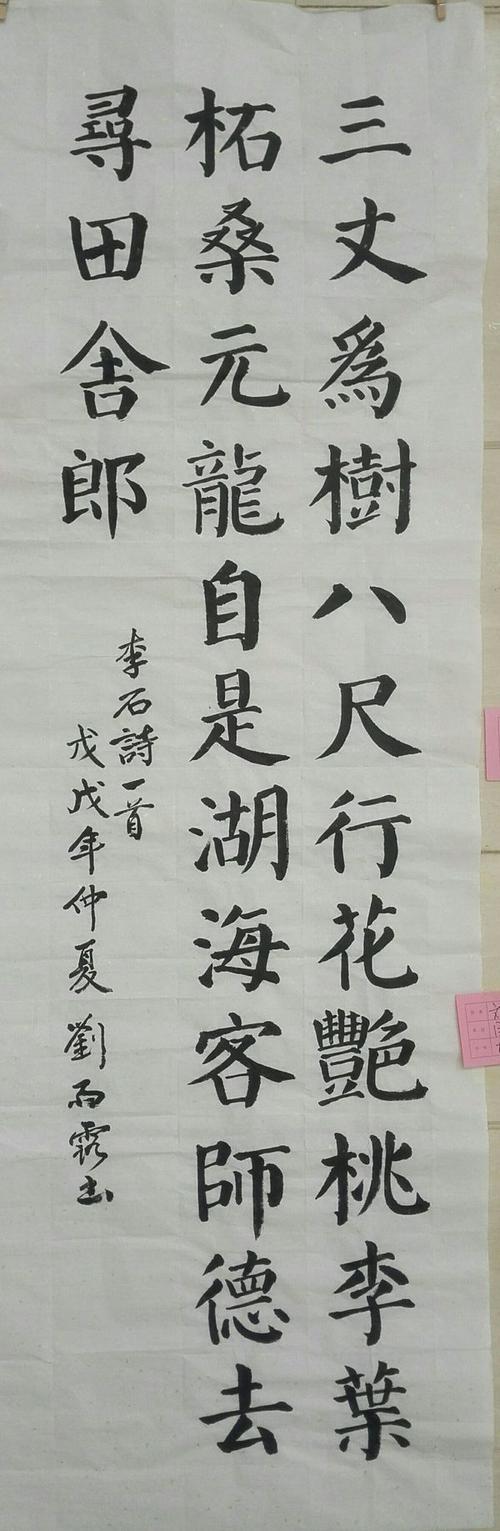 三丈為樹八尺行花艷桃李葉
柘桑元龍自是湖海客師德去
尋田舍郎
李石詩一首
戊戌年仲夏劉雨露書